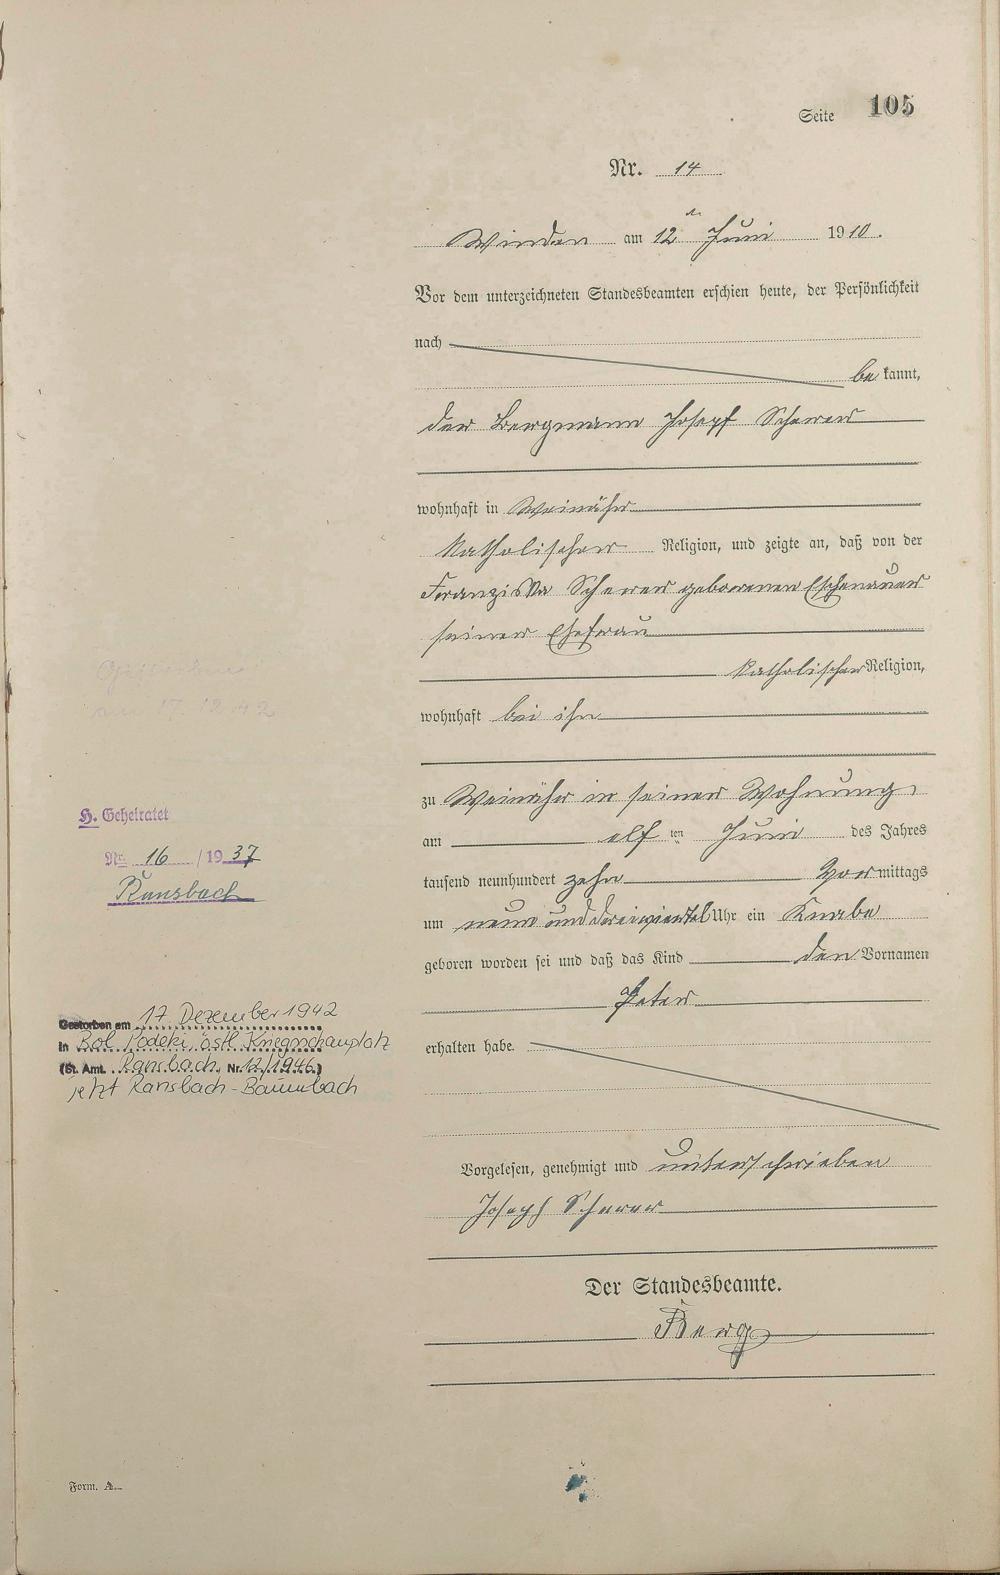 Seite 105
Nr. 14
Winden am 12ten Juni 1910.
Vor dem unterzeichneten Standesbeamten erschien heute, der Persönlichkeit
nach
bekannt,
der Bergmann Joseph Scherer
wohnhaft in Weinähr
katholischer Religion, und zeigte an, daß von der
Franziska Scherer geborenen Eschenauer
seiner Ehefrau
katholischer Religion,
wohnhaft bei ihm
zu Weinähr in seiner Wohnung,
am elf ten Juni des Jahres
tausend neunhundert zehn Vormittags
um neun und dreiviertel Uhr ein Knabe
geboren worden sei und daß das Kind den Vornamen
Peter
erhalten habe.
Vorgelesen, genehmigt und unterschrieben
Joseph Scherer
Der Standesbeamte.
Berg
am 17.12.42
H. Geheiratet
Nr. 16 / 1937
Ransbach
Gestorben am 17 Dezember 1942
in Bol. Podeki, östl. Kriegsschauplatz
(St. Amt. Ransbach Nr. 12/1946.)
jetzt Ransbach-Baumbach
Form. A.